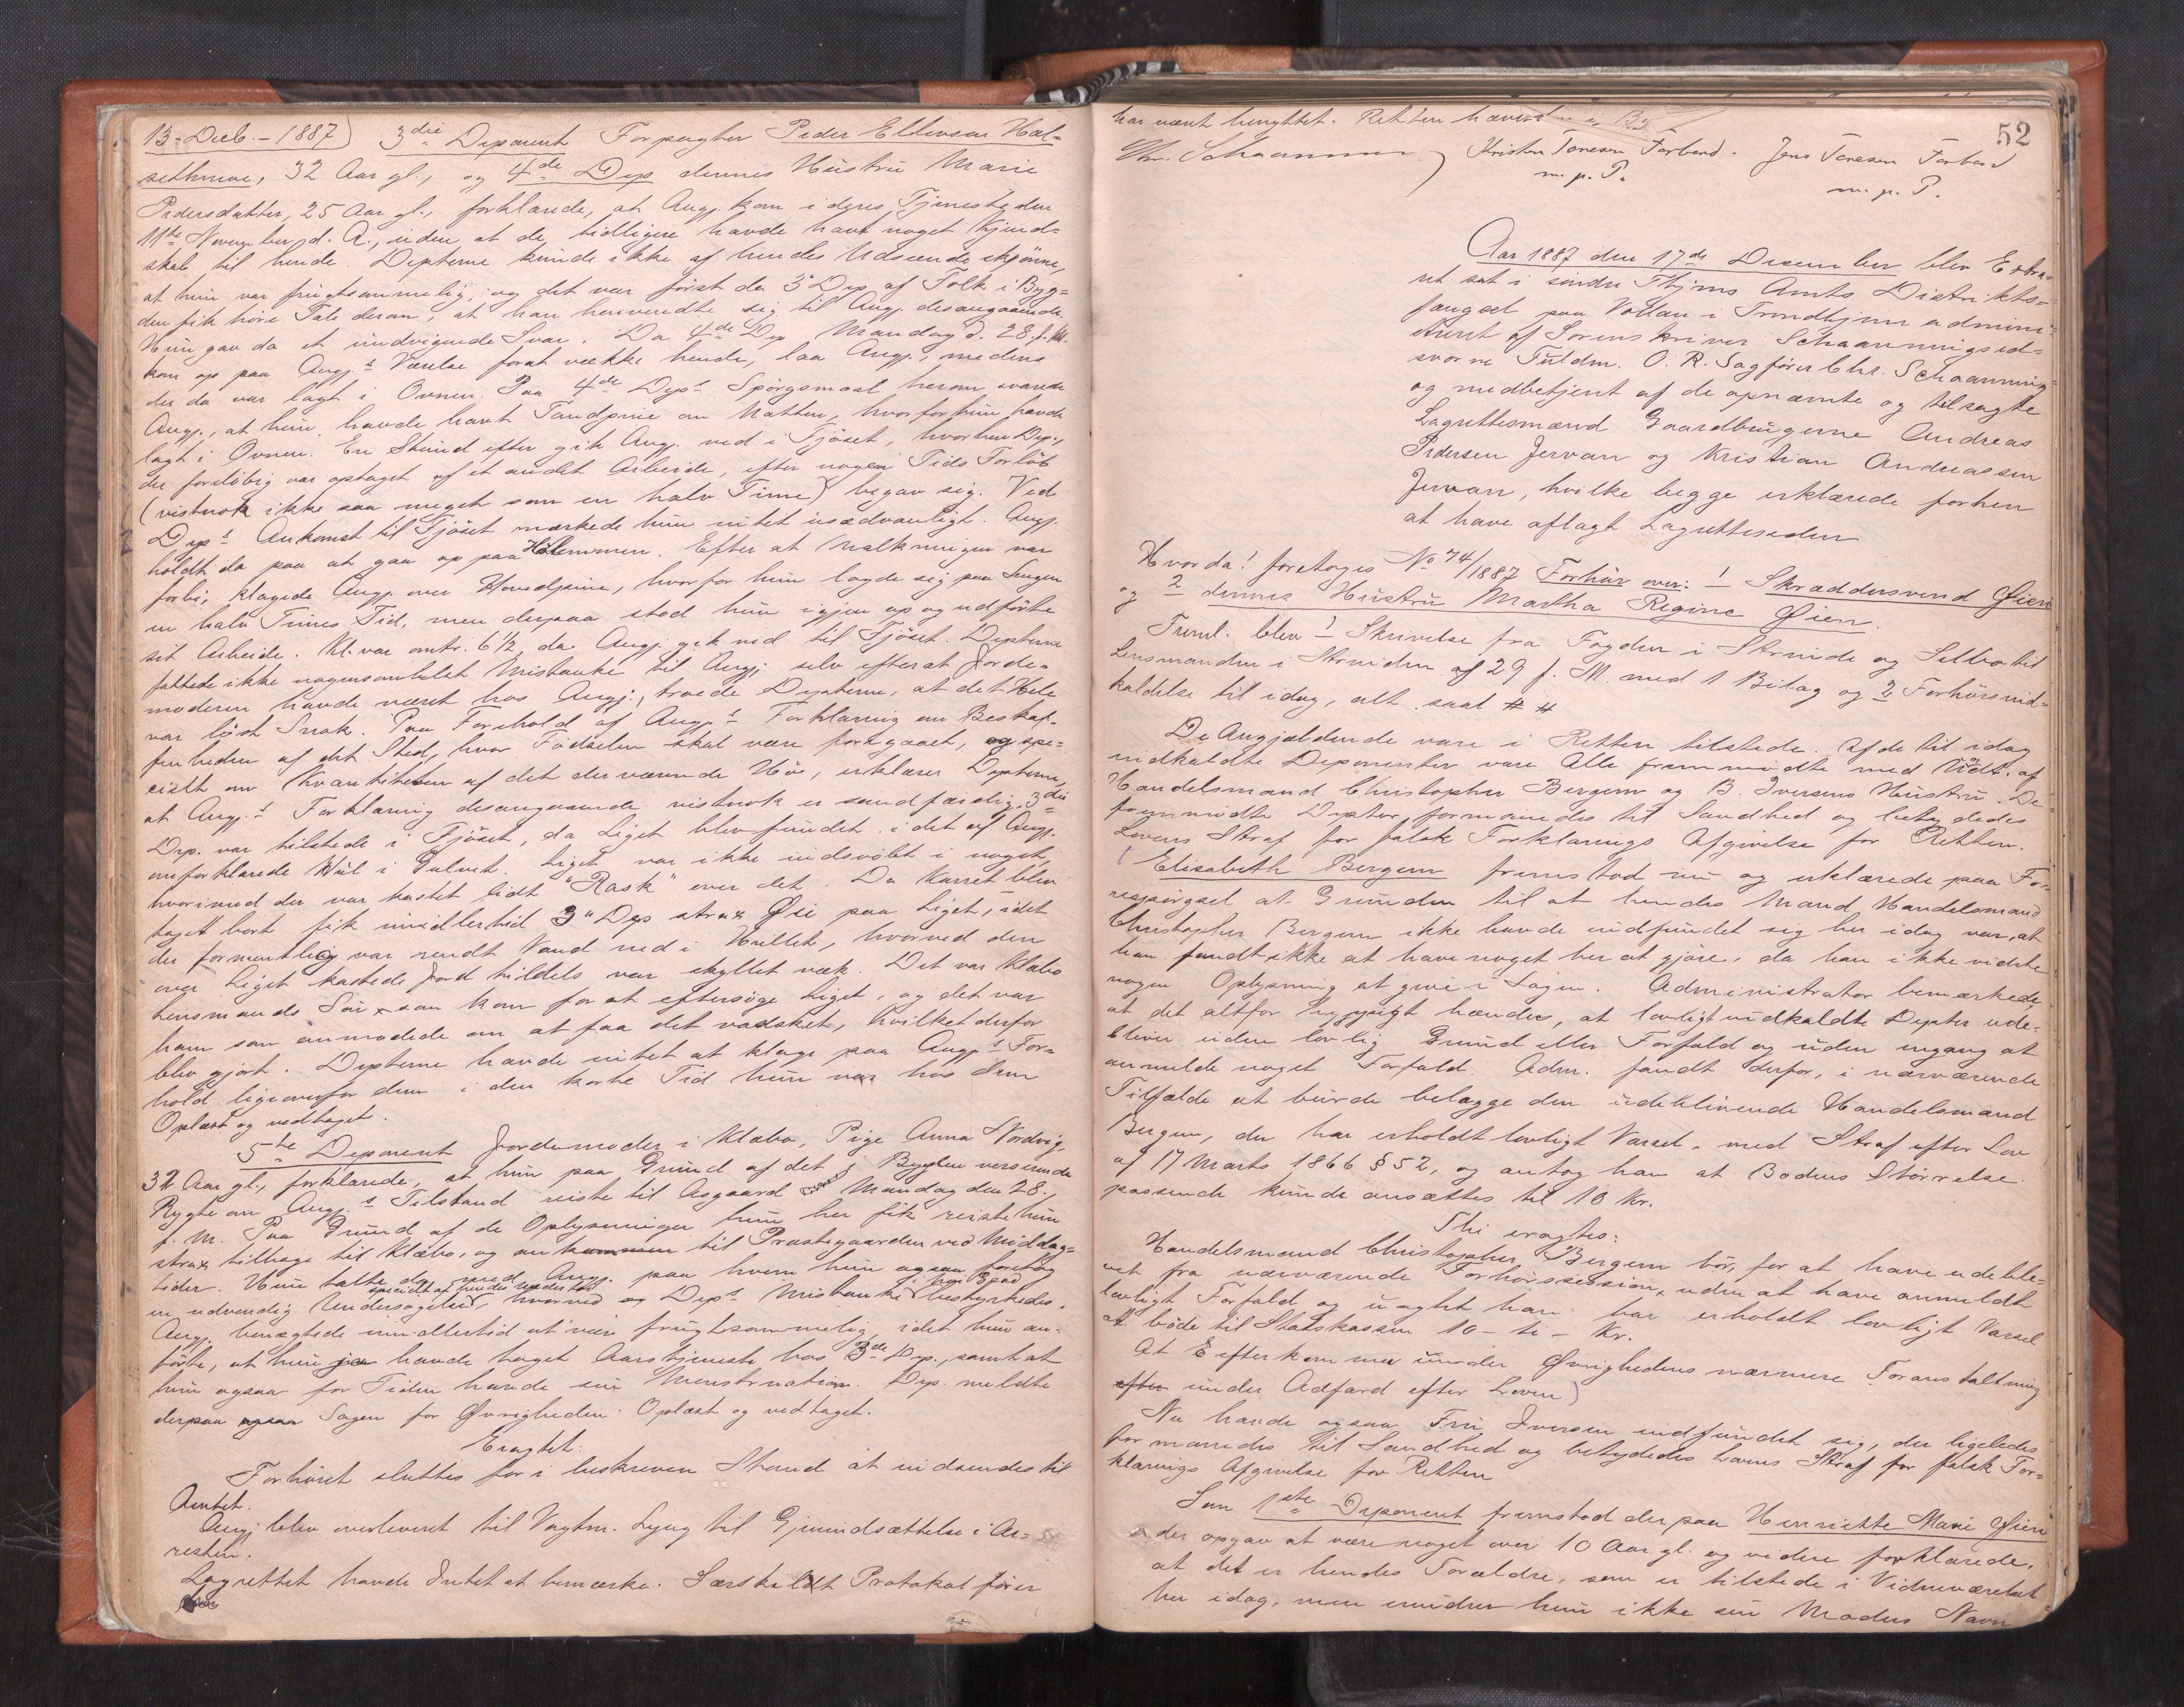 13 Decb. - 1887) 3die Deponent Forpagter Peder Ellevsen Hal-
sethmoe, 32 Aar gl., og 4de Dep dennes Hustru Marie
Pedersdatter, 25 Aar gl., forklarede, at Angj. kom i deres Tjeneste den
11te November d. A., uden at de tidligere havde havt noget Kjend-
skab til hende. Depterne kunde ikke af hendes Udseende skjønne,
at hun var frugtsommelig, og det var først da 3die Dep af Folk i Byg-
den fik høre Tale derom, at han henvendte sig til Angj. desangaaende.
Hun gav da et undvigende Svar. Da 4de Dep Mandag d. 28. f. M.
kom op paa Angj.s Værelse forat vække hende, laa Angj., medens
der da var lagt i Ovnen. Paa 4de Deps Spørgsmaal herom svarede
Angj., at hun havde havt Tandpine om Natten, hvorfor hun havde
lagt i Ovnen. En Stund efter gik Angj. ned i Fjøset, hvorhen Dep.,
der foreløbig var optaget af et andet Arbeide, efter nogen Tids Forløb
(vistnok ikke saa meget som en halv Time) begav sig. Ved
Deps Ankomst til Fjøset mærkede hun intet usædvanligt. Angj.
holdt da paa at gaa op paa Hølemmen. Efter at Malkningen var
forbi, klagede Angj. over Hovedpine, hvorfor hun lagde sig paa Sengen
en halv Times Tid, men derpaa stod hun igjen op og udførte
sit Arbeide. Kl. var omtr. 6 1/2, da Angj. gik ned til Fjøset. Depterne
fattede ikke nogensomhelst Mistanke til Angj., selv efterat Jorde-
moderen havde været hos Angj., troede Depterne, at det Hele
var løst Snak. Paa Forehold af Angj.s Forklaring om Beskaf-
fenheden af det Sted, hvor Fødselen skal være foregaaet, og spe-
cielt om Kvantiteten af det derværende Hø, erklærer Depterne,
at Angj.s Forklaring desangaaende vistnok er sandfærdig. 3die
Dep. var tilstede i Fjøset, da Liget blev fundet i det af Angj.
omforklarede Hul i Gulvet. Liget var ikke indsvøbt i noget,
hvorimod der var kastet lidt "Rask" over det. Da Karret blev
taget bort fik imidlertid 3die Dep strax Øie paa Liget, idet
der formentlig var rendt Vand ned i Hullet, hvorved den
over Liget kastede Jord tildels var skyllet væk. Det var Klæbo
Lensmands Søn, som kom for at eftersøge Liget, og det var
ham som anmodede om at faa det vadsket, hvilket derfor
blev gjort. Depterne havde intet at klage paa Angj.s For-
hold ligeoverfor dem i den korte Tid hun var hos dem
Oplæst og vedtaget.
5te Deponent Jordemoder i Klæbo, Pige Anna Nordvig,
32 Aar gl., forklarede, at hun paa Grund af det i Bygden verserende
Rygte om Angj.s Tilstand reiste til Asgaard Mandag den 28.
f. M. Paa Grund af de Oplysninger hun her fik reiste hun
strax tilbage til Klæbo, og ankom til Præstegaarden ved Middags-
tider. Hun talte da med Angj. paa hvem hun ogsaa foretog
en udvendig Undersøgelse, specielt af hendes hvorved og Deps Mistanke bestyrkedes.
Angj. benægtede imidlertid at være frugtsommelig, idet hun an-
førte, at hun havde taget Aarstjeneste hos 3de Dep., samt at
hun ogsaa for Tiden havde sin Menstruation. Dep. meldte
derpaa Sagen for Øvrigheden. Oplæst og vedtaget.
Eragtet:
Forhøret sluttes for i beskreven Stand at indsendes til
Amtet.
Angj blev overleveret til Vagtm. Lyng til Gjenindsættelse i Ar-
resten.
Lagrettet havde Intet at bemærke. Særskildt Protokol før
har været benyttet. Retten hævet
52
Chr. Schaanning ) Kristen Tonesen Forbord. Jens Tonesen Forbord
m. p. P. m. p. P.
Aar 1887 den 17de December blev Extra-
ret sat i søndre Thjems Amts Distrikts-
fængsel paa Vollan i Trondhjem admini-
streret af Sorenskriver Schaannings ed-
svorne Fuldm. O. R. Sagfører Chr. Schaanning
og medbetjent af de opnævnte og tilsagte
Lagrettesmænd Gaardbrugerne Andreas
Pedersen Jervan og Kristian Andreassen
Jervan, hvilke begge erklærede forhen
at have aflagt Lagretteseden
Hvorda! foretoges No 74/1887 Forhør over: 1 Skræddersvend Øien
og 2 dennes Hustru Martha Regine Øien.
Freml. blev 1 Skrivelse fra Fogden i Strinde og Selbo til
Lensmanden i Strinden af 29 f. M. med 1 Bilag og 2 Forhørsind-
kaldelse til idag, alt saal # #
De Angjældende vare i Retten tilstede. Af de til idag
indkaldte Deponenter vare Alle fremmødte med Undt. af
Handelsmand Christopher Bergem og B. Iversens Hustru. De
fremmødte Depter formanedes til Sandhed og betydedes
Lovens Straf for falsk Forklarings Afgivelse for Retten.
Elisabeth Bergem fremstod nu og erklærede paa Fo-
respørgsel at Grunden til at hendes Mand Handelsmand
Christopher Bergem ikke havde indfundet sig her idag var, at
han fandt ikke at have noget her at gjøre, da han ikke vidste
nogen Oplysning at give i Sagen. Administrator bemærkede,
at det altfor hyppigt hænder, at lovligt indkaldte Depter ude-
bliver uden lovlig Grund eller Forfald og uden engang at
anmelde noget Forfald. Adm. fandt derfor, i nærværende
Tilfælde at burde belægge den udeblivende Handelsmand
Bergem, der har erholdt lovligt Varsel, med Straf efter Lov
af 17 Marts 1866 § 52, og antog han at Bodens Størrelse
passende kunde ansættes til 10 Kr.
Thi eragtes:
Handelsmand Christopher Bergem bør, for at have udeble-
vet fra nærværende Forhørssession, uden at have anmeldt
lovligt Forfald og uagtet han har erholdt lovligt Varsel
at bøde til Statskassen 10 - ti - Kr.
At Efterkomme under Øvrighedens nærmere Foranstaltning
efter under Adfærd efter Loven)
Nu havde ogsaa Fru Iversen indfundet sig, der ligeledes
formanedes til Sandhed og betydedes Lovens Straf for falsk For-
klarings Afgivelse for Retten
Som 1ste Deponent fremstod derpaa Henriette Marie Øien
der opgav at være noget over 10 Aar gl. og videre forklarede,
at det er hendes Forældre, som er tilstede i Vidneværelset
her idag, men erindrer hun ikke sin Moders Navn